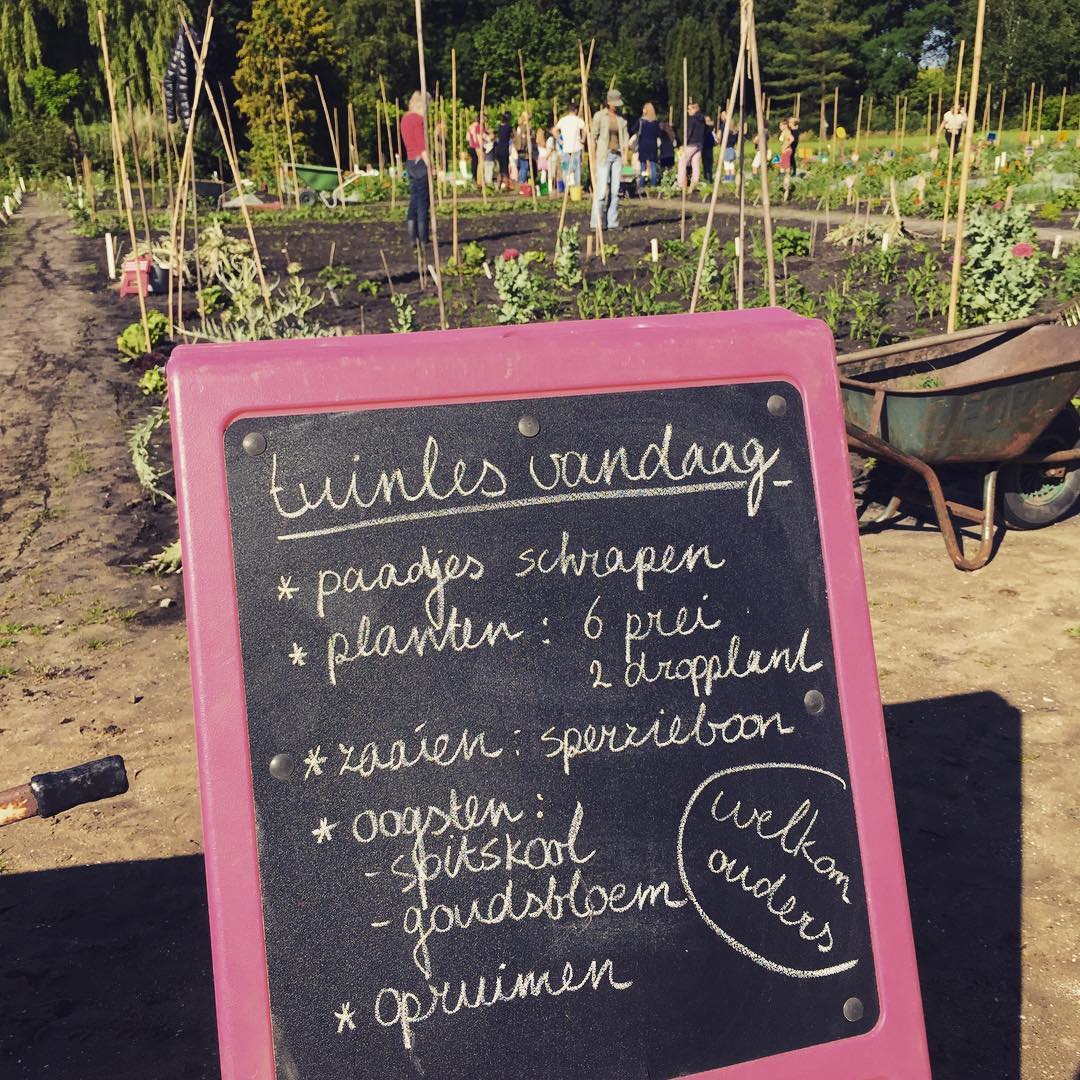 tuinles vandaag
* paadjes schrapen
* planten: 6 prei
2 dropplant
* zaaien: sperzieboon
* oogsten:
- spitskool
- goudsbloem
* opruimen
welkom
ouders